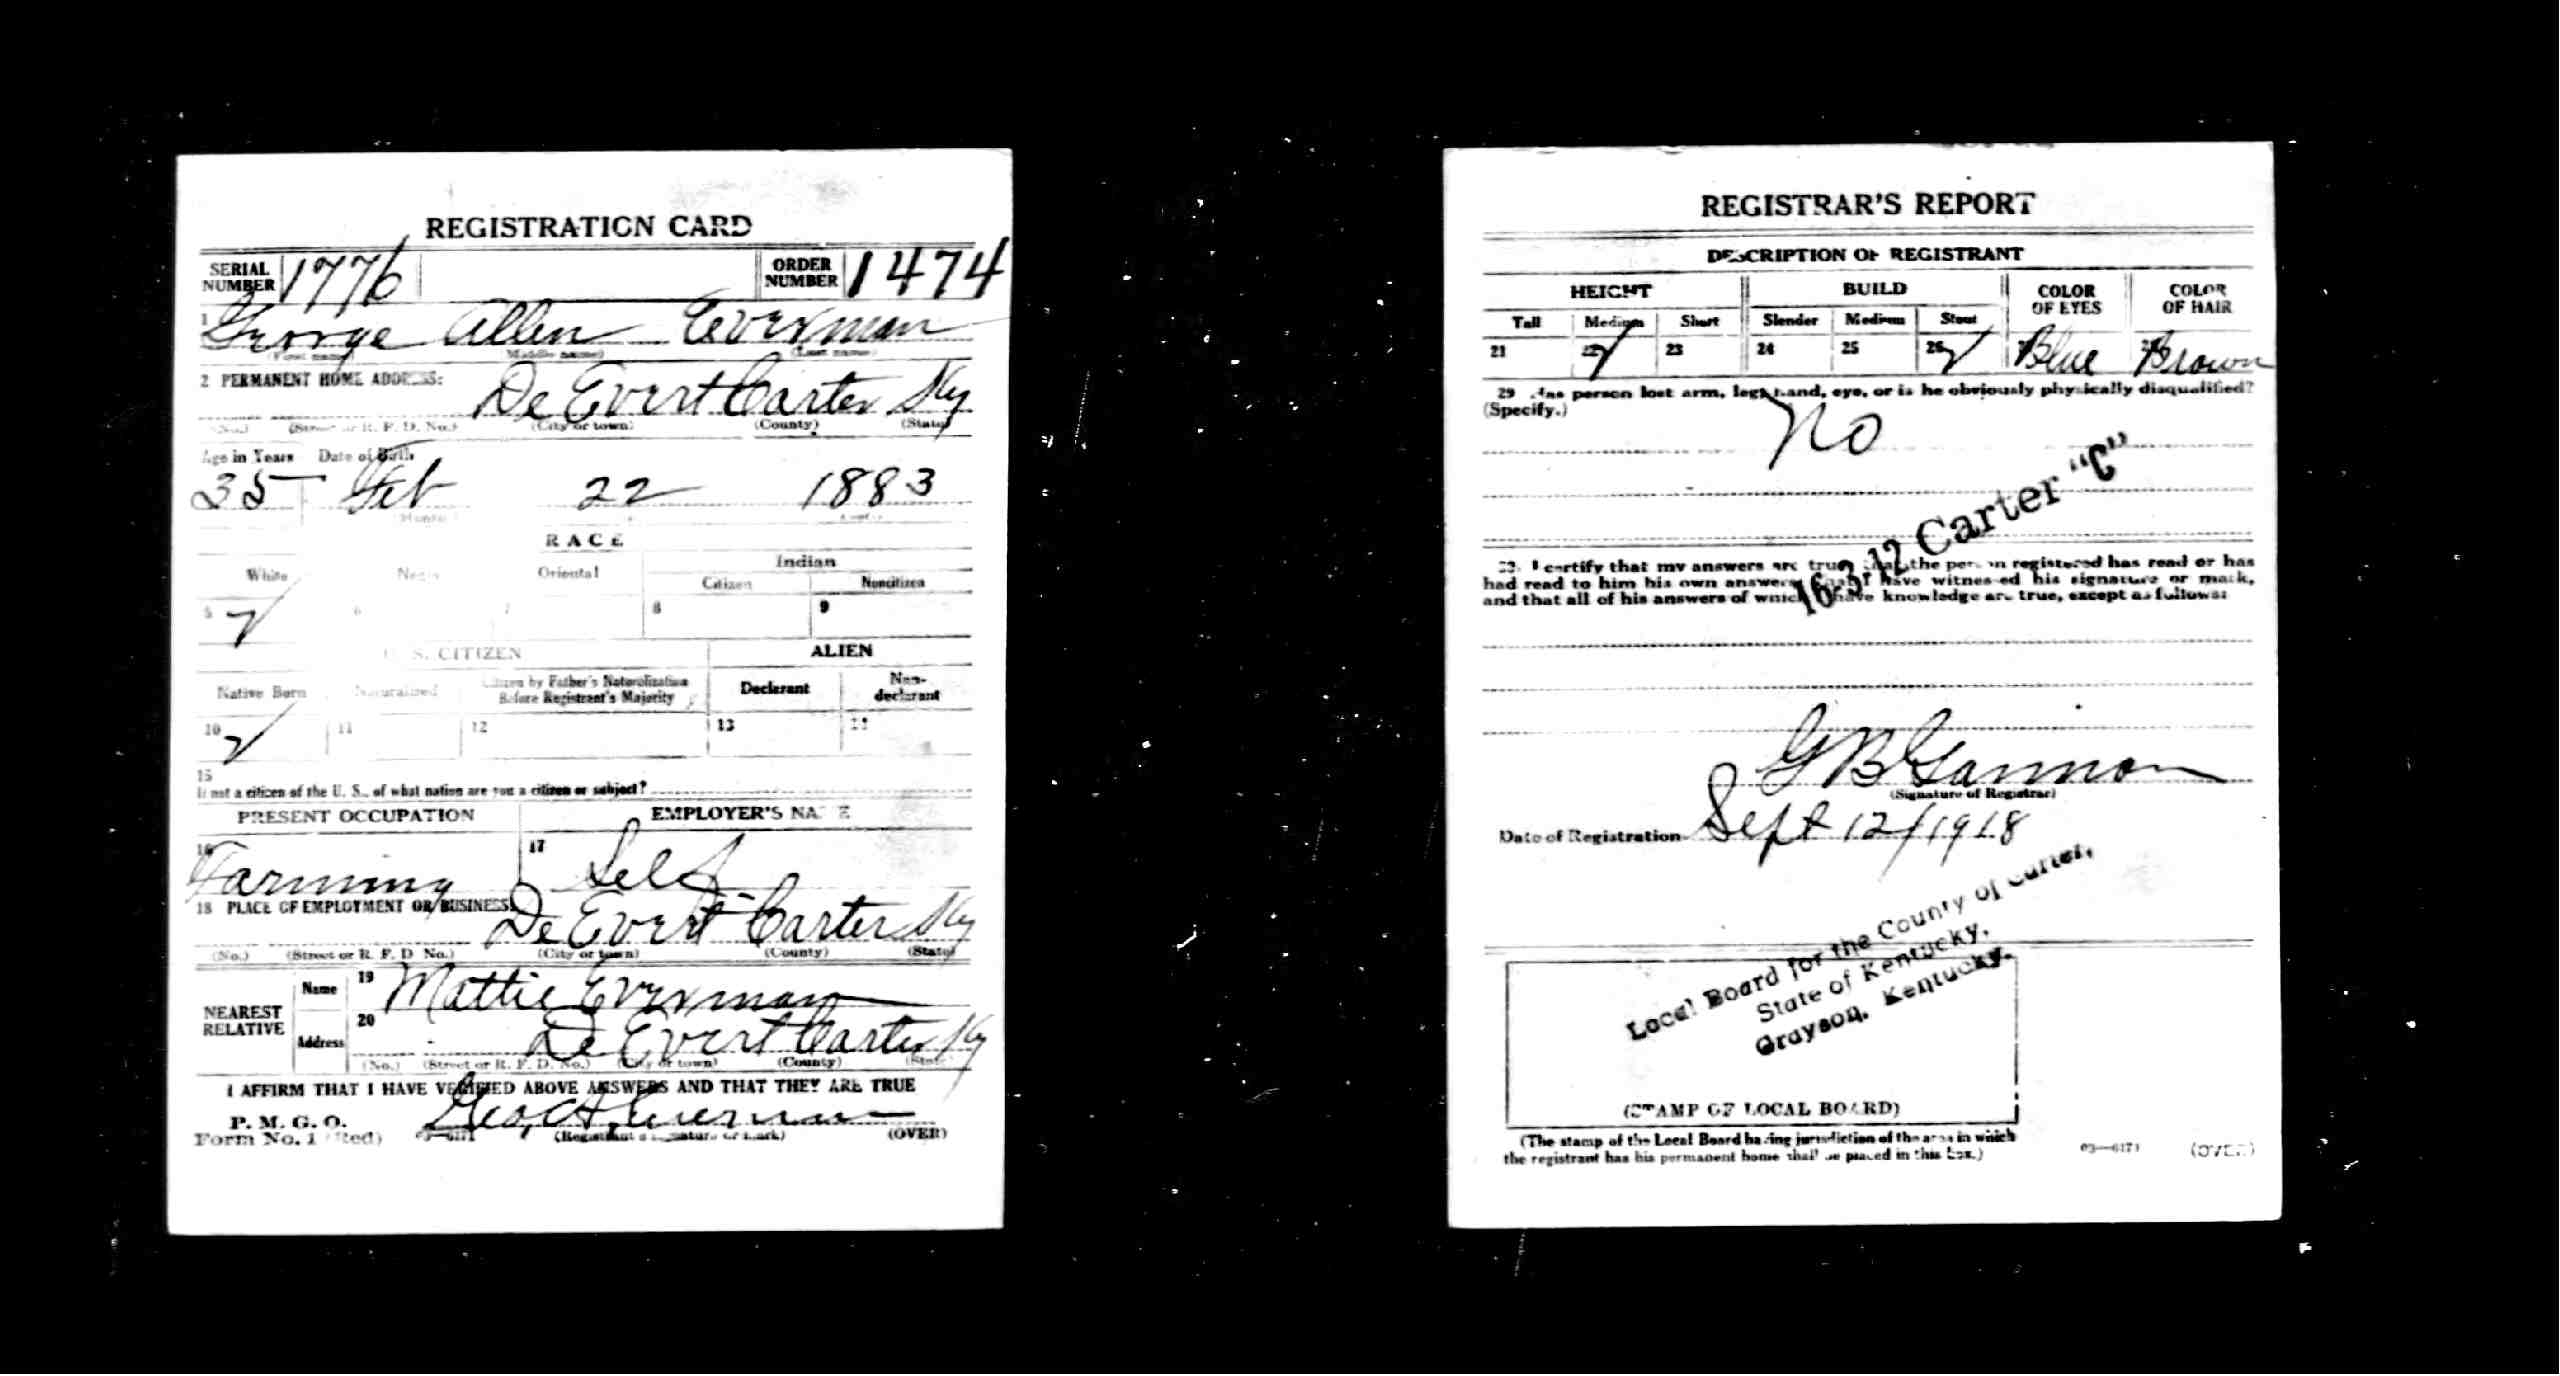 REGISTRATION CARD
SERIAL NUMBER 1776 ORDER NUMBER 1474
1 George Allen Everman
(First name) (Middle name) (Last name)
2 PERMANENT HOME ADDRESS:
De Evert Carter Ky
(No.) (Street or R. F. D. No.) (City or town) (County) (State)
Age in Years Date of Birth
35 Feb 22 1883
(Month)
RACE
White Negro Oriental Indian
Citizen Noncitizen
5 ✓ 6 7 8 9
U. S. CITIZEN ALIEN
Native Born Naturalized Citizen by Father's Naturalization Before Registrant's Majority Declarant Non-declarant
10 ✓ 11 12 13 14
15
If not a citizen of the U. S., of what nation are you a citizen or subject?
PRESENT OCCUPATION EMPLOYER'S NAME
16 Farming 17 Self
18 PLACE OF EMPLOYMENT OR BUSINESS
De Evert Carter Ky
(No.) (Street or R. F. D. No.) (City or town) (County) (State)
NEAREST RELATIVE Name 19 Mattie Everman
Address 20 De Evert Carter Ky
(No.) (Street or R. F. D. No.) (City or town) (County) (State)
I AFFIRM THAT I HAVE VERIFIED ABOVE ANSWERS AND THAT THEY ARE TRUE
P. M. G. O.
Form No. 1 (Red) 03—6171 Geo, A, Everman
(Registrant's signature or mark) (OVER)
REGISTRAR'S REPORT
DESCRIPTION OF REGISTRANT
HEIGHT BUILD COLOR OF EYES COLOR OF HAIR
Tall Medium Short Slender Medium Stout
21 22 ✓ 23 24 25 26 ✓ Blue Brown
29 Has person lost arm, leg, hand, eye, or is he obviously physically disqualified?
(Specify.)
No
16-3-12 Carter "C"
I certify that my answers are true, that the person registered has read or has
had read to him his own answers, that I have witnessed his signature or mark,
and that all of his answers of which I have knowledge are true, except as follows:
G B Gannon
(Signature of Registrar)
Date of Registration Sept 12/1918
Local Board for the County of Carter,
State of Kentucky,
Grayson, Kentucky.
(STAMP OF LOCAL BOARD)
(The stamp of the Local Board having jurisdiction of the area in which
the registrant has his permanent home shall be placed in this box.)
03—6171 (OVER)